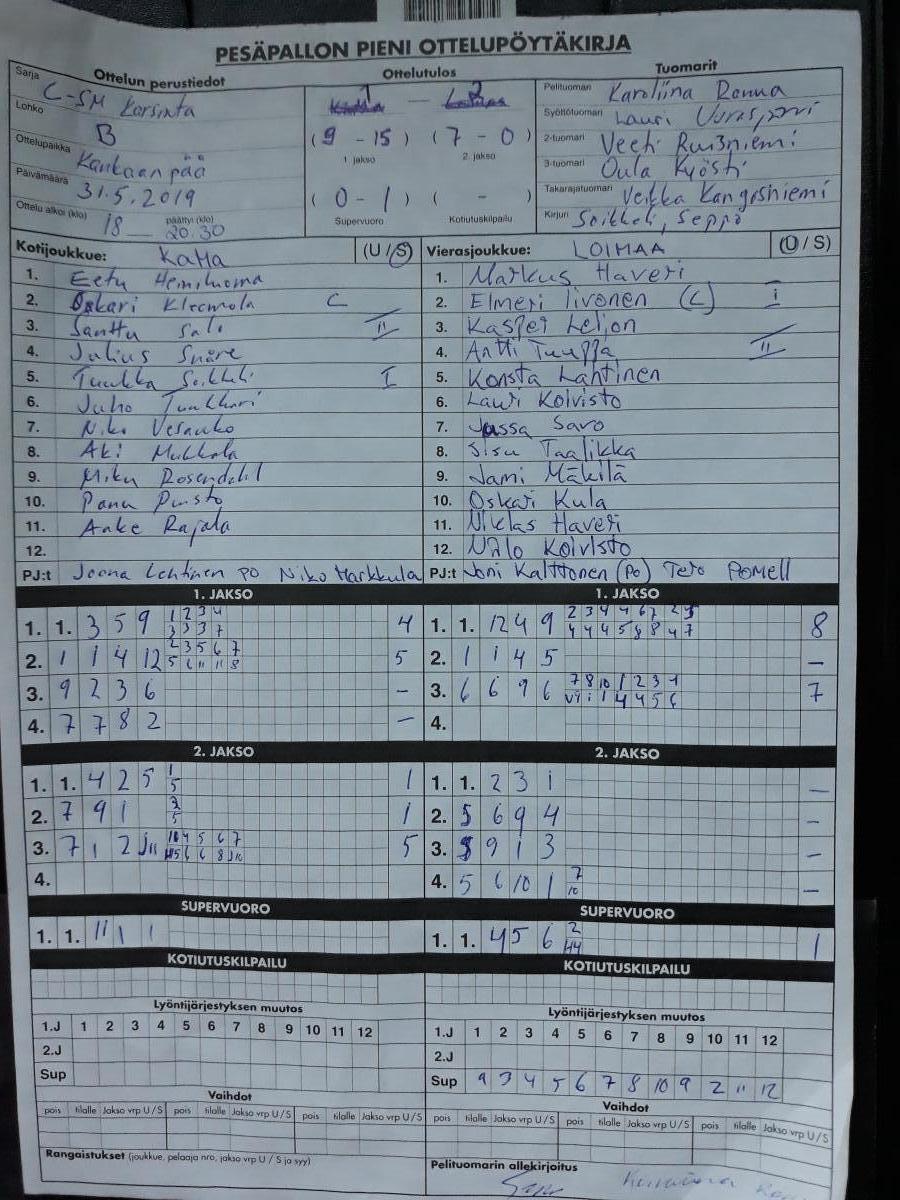 PESÄPALLON PIENI OTTELUPÖYTÄKIRJA
Ottelun perustiedot
Sarja C-SM Karsinta
Lohko B
Ottelupaikka Kankaanpää
Päivämäärä 31.5.2019
Ottelu alkoi (klo) 18 päättyi (klo) 20.30
Ottelutulos
1 - 2
(9 - 15) (7 - 0)
1. jakso 2. jakso
(0 - 1) ( - )
Supervuoro Kotiutuskilpailu
Tuomarit
Pelituomari Karoliina
Syöttötuomari Lauri
2-tuomari
3-tuomari Oula Kyösti
Takarajatuomari Veikka Kangasniemi
Kirjuri Soikkeli, Seppo
Kotijoukkue: KaMa (U / S)
1. Eetu Heiniluoma
2. Oskari Kleemola C
3. Santtu Salo II
4. Julius Snåre
5. Tuukka Soikkeli I
6. Juho Tuukkari
7. Niko
8. Aki Mukkala
9. Miku Rosendahl
10. Panu Puisto
11. Anke Rajala
12.
PJ:t Joona Lehtinen PO Niko Markkula
Vierasjoukkue: LOIMAA (U / S)
1. Markus Haveri
2. Elmeri Iivonen (C) I
3. Kasper
4. Antti Tuuppa II
5. Konsta Lahtinen
6. Lauri Koivisto
7. Jussa Saro
8. Sisu Taalikka
9. Jami Mäkilä
10. Oskari Kula
11. Niklas Haveri
12. Niilo Koivisto
PJ:t Joni Kalttonen (PO) Tero Pomell
1. JAKSO
1. 1. 3 5 9 1 2 3 4 4
3 3 3 7
2. 1 1 4 12 2 3 5 6 7 5
5 6 11 11 8
3. 9 2 3 6 -
4. 7 7 8 2 -
1. JAKSO
1. 1. 12 4 9 2 3 4 4 6 7 2 8
4 4 4 5 8 8 4 7
2. 1 1 4 5 -
3. 6 6 9 6 7 8 10 1 2 3 4 7
4.
2. JAKSO
1. 1. 4 2 5 1 1
5
2. 7 9 1 2 1
5
3. 7 1 2 4 5 6 7 5
4.
2. JAKSO
1. 1. 2 3 1 -
2. 5 6 9 4 -
3. 5 9 1 3 -
4. 5 6 10 1 7 -
10
SUPERVUORO
1. 1. 11 1 1
SUPERVUORO
1. 1. 4 5 6 2 1
KOTIUTUSKILPAILU
KOTIUTUSKILPAILU
Lyöntijärjestyksen muutos
1.J 1 2 3 4 5 6 7 8 9 10 11 12
2.J
Sup
Lyöntijärjestyksen muutos
1.J 1 2 3 4 5 6 7 8 9 10 11 12
2.J
Sup 1 3 4 5 6 7 8 10 9 2 11 12
Vaihdot
pois tilalle Jakso vrp U / S pois tilalle Jakso vrp U / S pois tilalle Jakso vrp U / S
Vaihdot
pois tilalle Jakso vrp U / S pois tilalle Jakso vrp U / S pois tilalle Jakso vrp U / S
Rangaistukset (joukkue, pelaaja nro, jakso vrp U / S ja syy)
Pelituomarin allekirjoitus